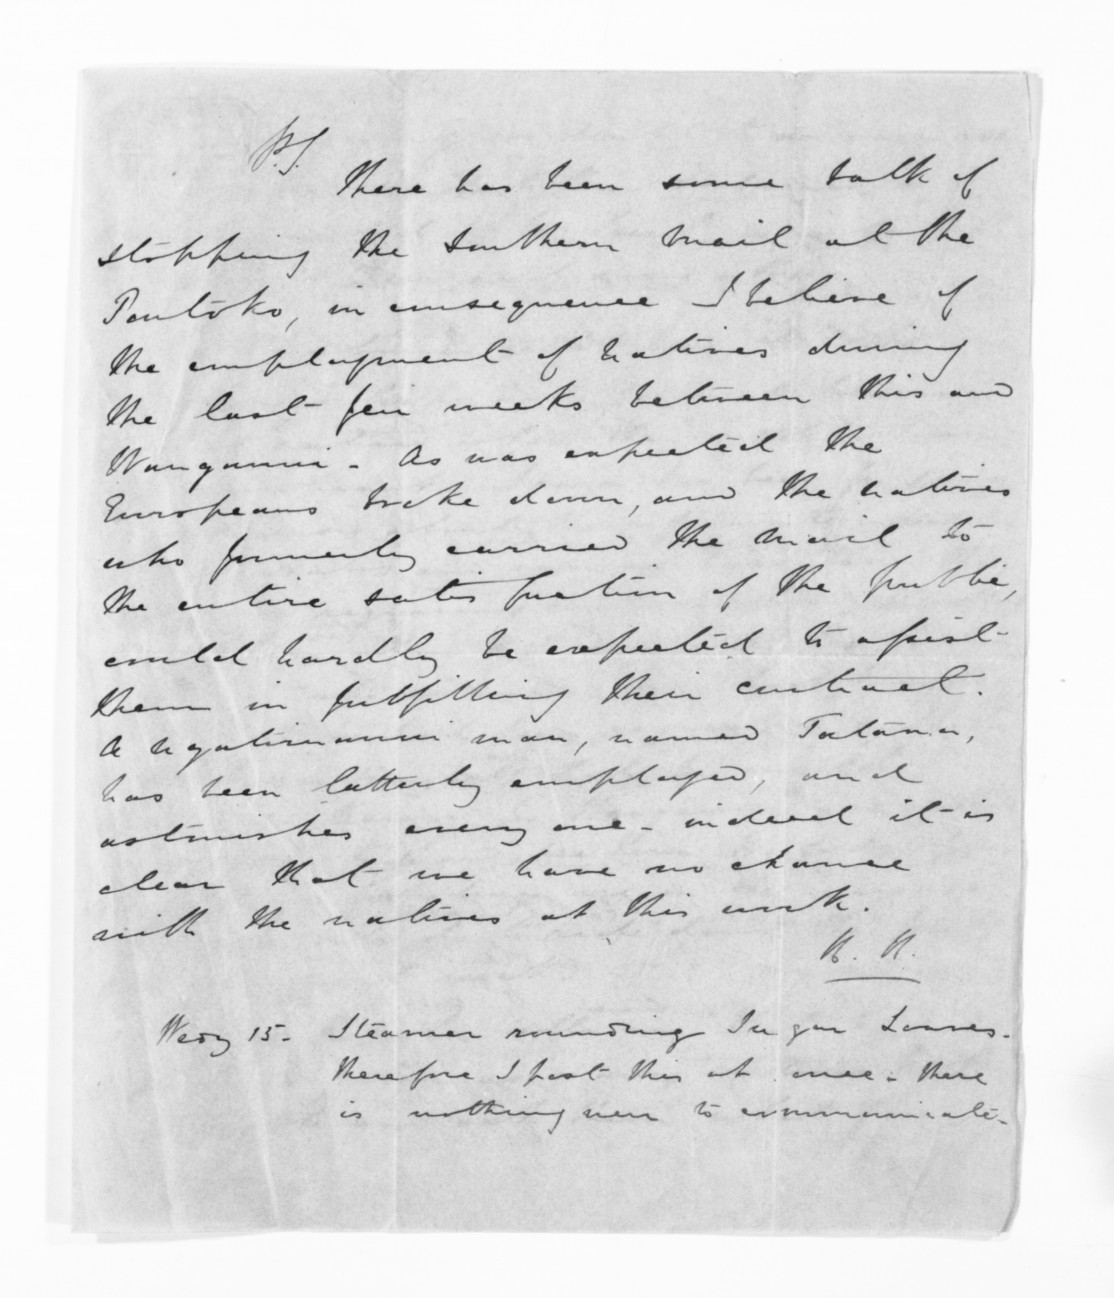 P.S.
There has been some talk of
stopping the Southern Mail at the
Poutoko, in consequence I believe of
the employment of natives during
the last few weeks between this and
Wanganui. As was expected the
Europeans broke down, and the natives
who formerly carried the Mail to
the entire satisfaction of the public,
could hardly be expected to assist
them in fulfilling their contract.
A Ngatiruanui man, named Tatana,
has been latterly employed, and
astonishes every one - indeed it is
clear that we have no chance
with the natives at this work.
Wedy 15 - Steamer rounding Sugar Loaves -
therefore I post this at once - there
is nothing new to communicate -